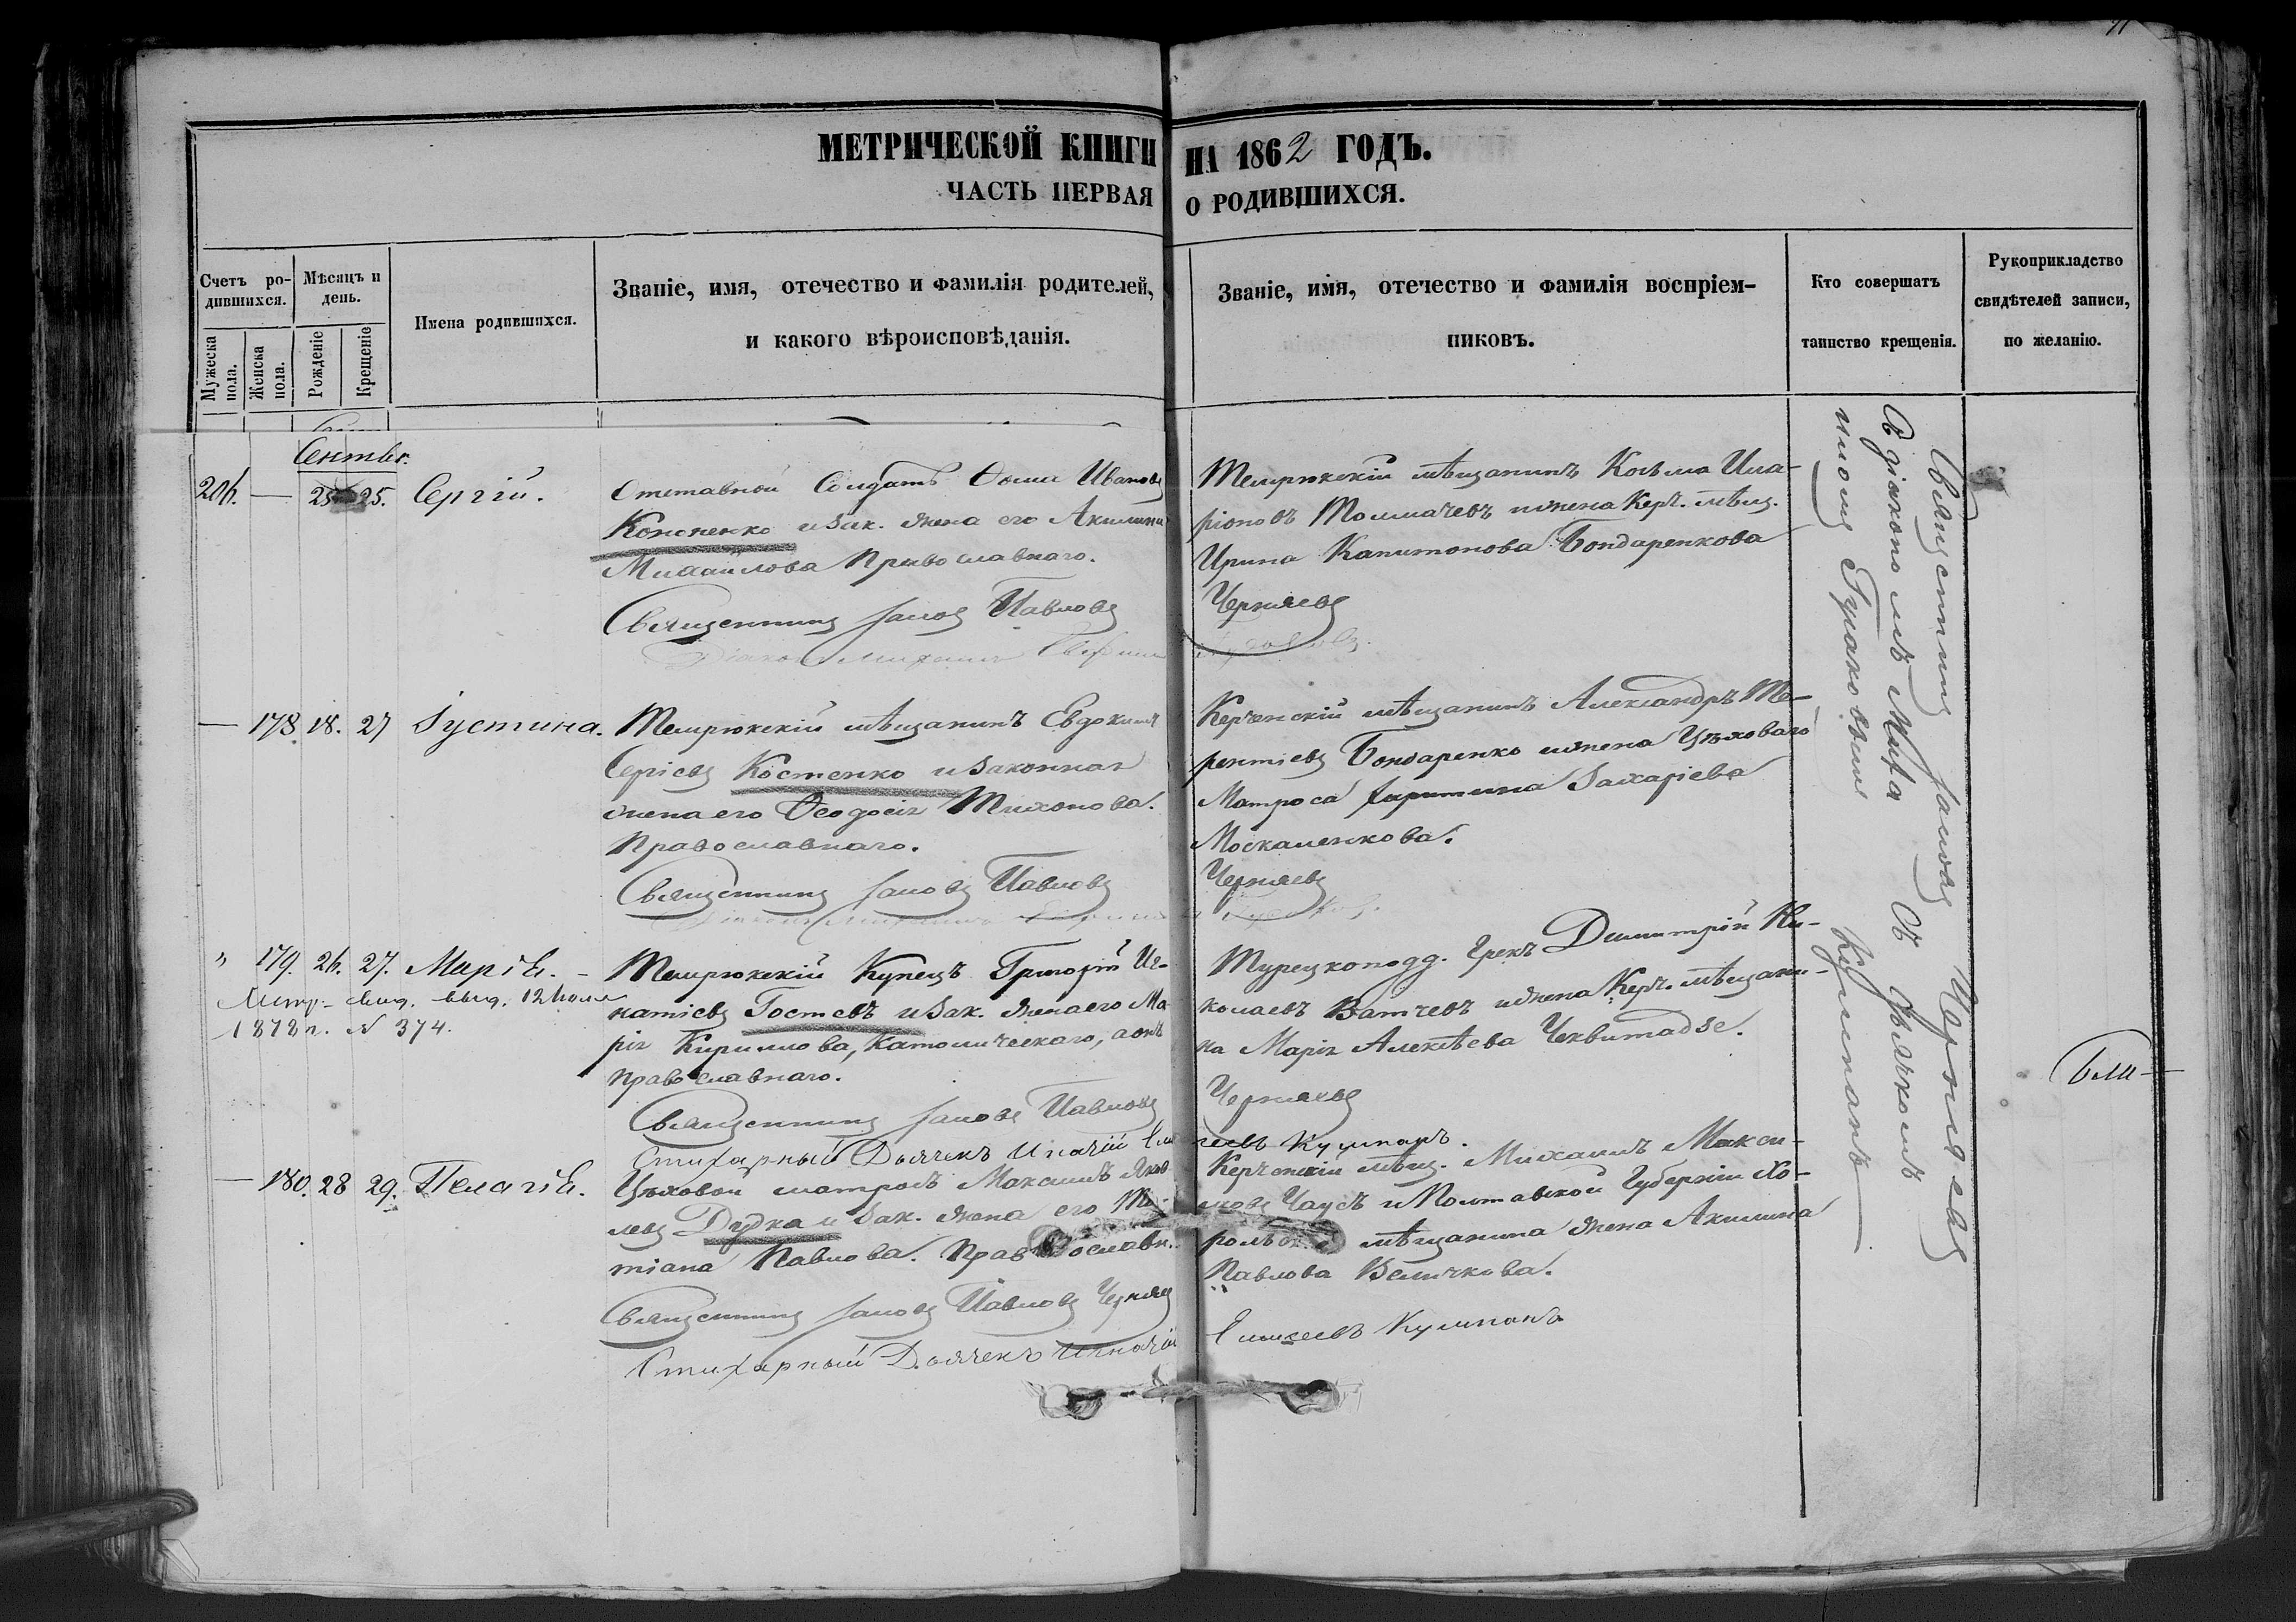 МЕТРИЧЕСКОЙ КНИГИ НА 1862 ГОДЪ.
ЧАСТЬ ПЕРВАЯ О РОДИВШИХСЯ.
Счетъ ро-
дившихся.
Мужеска
пола.
Женска
пола.
Мѣсяцъ и
день.
Рожденіе
Крещеніе
Имена родившихся.
Званіе, имя, отечество и фамилія родителей,
и какого вѣроисповѣданія.
Званіе, имя, отечество и фамилія воспріем-
никовъ.
Кто совершатъ
таинство крещенія.
Рукоприкладство
свидѣтелей записи,
по желанію.
Сентбр.
206. — 25 25. Сергій.
Отставной Солдатъ Ѳома Ивановъ
Кононенко и зак. жена его Акилина
Михаилова Православнаго.
Священникъ Іаковъ Павловъ
Діаконъ Михаилъ
Темрюкскій мѣщанинъ Косьма Ила-
ріоновъ Толмачевъ и жена Керч. мѣщ.
Ирина Капитонова Бондаренкова
Черняевъ
— 178 18. 27 Іустина.
Темрюкскій мѣщанинъ Евдокимъ
Сергіевъ Костенко и законная
жена его Ѳеодосія Тихонова.
Православнаго.
Священникъ Іаковъ Павловъ
Керченскій мѣщанинъ Александръ Те-
рентіевъ Бондаренко и жена Цѣховаго
Матроса Харитина Захаріева
Москаленкова.
Черняевъ
" 179. 26. 27. Марія. -
Метр. свид. выд. 12 Іюля
1878 г. № 374.
Темрюкскій Купецъ Григорій Иг-
натіевъ Гостевъ и зак. жена его Ма-
рія Кириллова, Католическаго, а онъ
православнаго.
Священникъ Іаковъ Павловъ
Стихарный Дьячекъ Игнатій Ели
Турецкоподд. Грекъ Димитрій Ни-
колаевъ Ватчевъ и жена Керч. мѣщани-
на Марія Алексѣева Чквитадзе.
Черняевъ
сеевъ Кулипанъ.
— 180. 28 29. Пелагія.
Цѣховой матросъ Максимъ Яков
левъ Дудка и зак. жена его Та-
тіана Павлова. Православн.
Священникъ Іаковъ Павловъ Черняев
Стихарный Дьячекъ Игнатій
Керченскій мѣщ. Михаилъ Макси-
мовъ Чаусъ и Полтавской Губерніи Хо-
рольск. мѣщанина жена Акилина
Павлова Величкова.
Елисеевъ Кулипанъ
Священникъ Іаковъ Черняевъ
Съ діакономъ Миха
иломъ Гулаковымъ
Съ Дьячкомъ
Кулипанъ